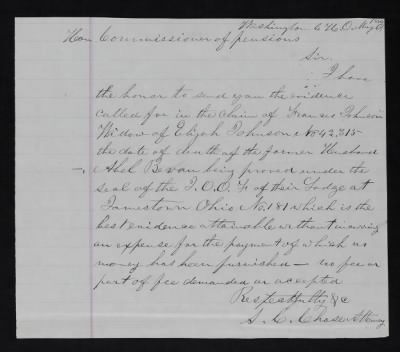 Washington C H O May
Hon Commissioner of pensions
Sir
I have
the honor to send you the evidence
called for in the claim of Frances Johnson
Widow of Elijah Johnson No 842,315
the date of death of the former Husband
Abel Bevan being proved under the
seal of the I.O.O.F. of their Lodge at
Jamestown Ohio No. 181 which is the
best evidence attainable without incurring
an expense for the payment of which no
money has been furnished — no fee or
part of fee demanded or accepted
Respectfully &c
S. C. Chase Attorney